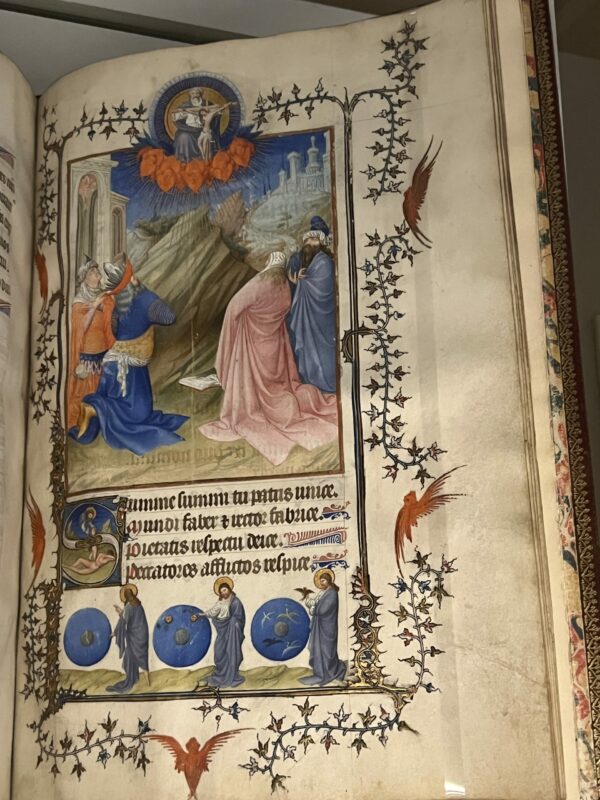 Summe summi tu patris unice.
Mundi faber ⁊ rector fabrice.
Pietatis respectu deice.
Peccatores afflictos respice.